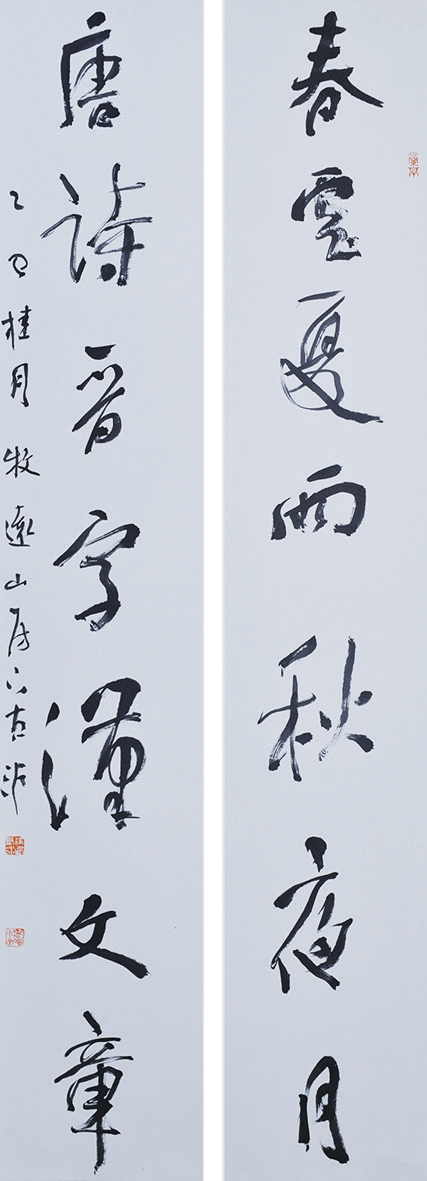 春雲夏雨秋夜月
唐詩晉字漢文章
乙巳桂月牧遠山房